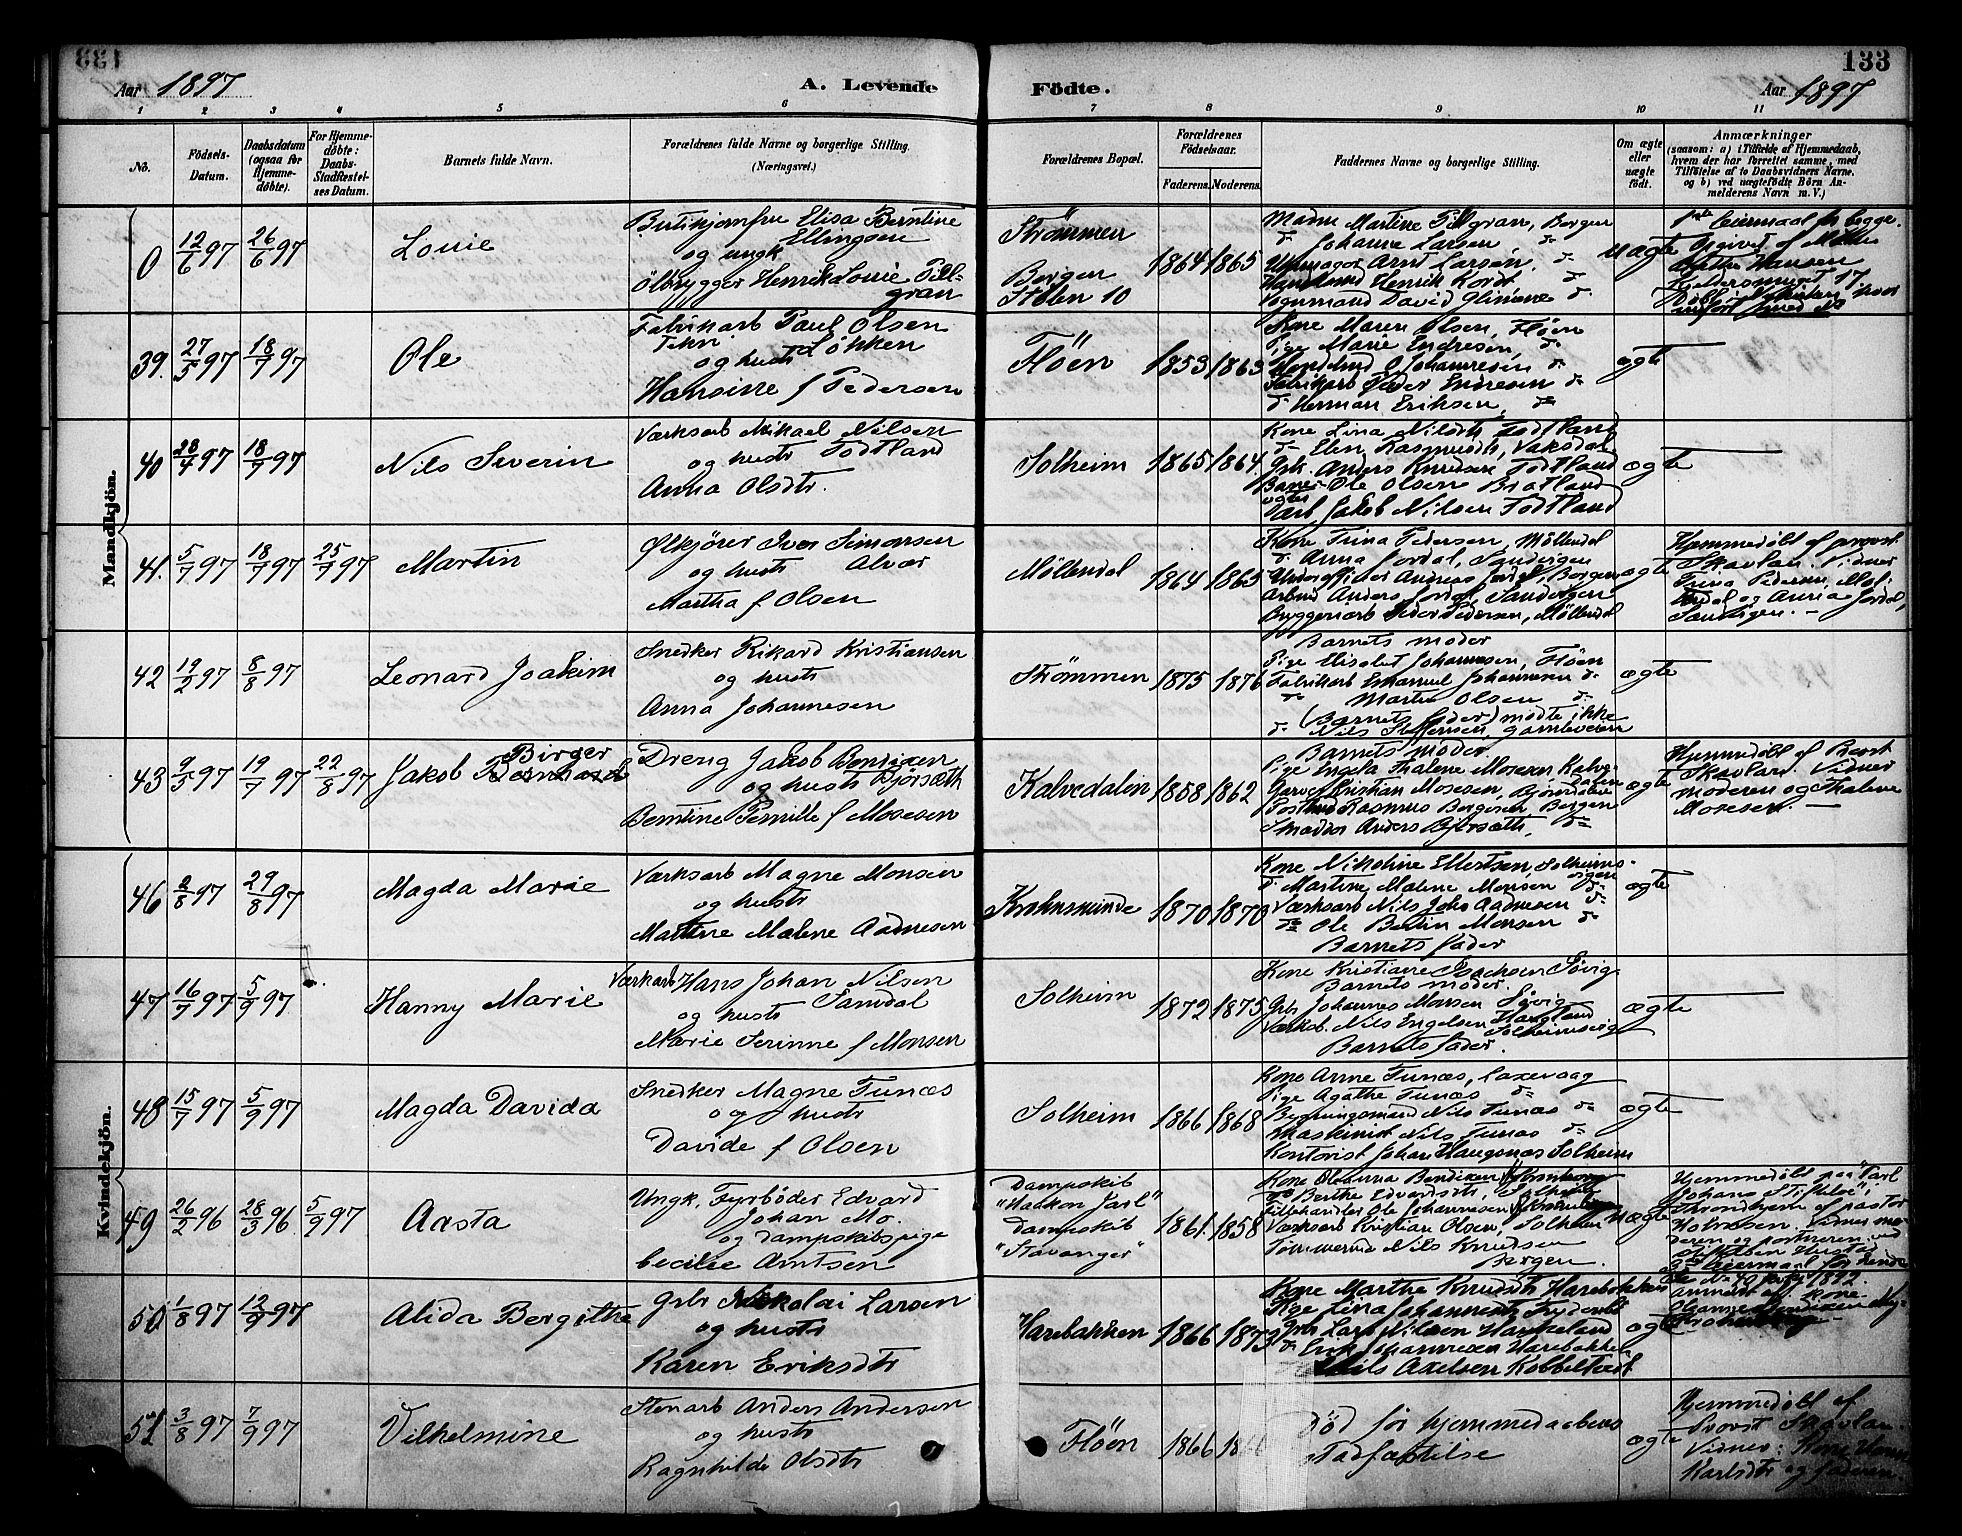 133
Aar 1897
A. Levende
Födte.
Aar 1897
133
1 2 3 4 5 6 7 8 9 10 11
No.
Födsels-Datum.
Daabsdatum (ogsaa for Hjemme-döbte).
For Hjemme-döbte: Daabs-Stadfæstel-ses Datum.
Barnets fulde Navn.
Forældrenes fulde Navne og borgerlige Stilling.
(Næringsvei.)
Forældrenes Bopæl.
Forældrenes Födselsaar.
Faderens. Moderens.
Faddernes Navne og borgerlige Stilling.
Om ægte eller uægte födt.
Anmærkninger
(saasom: a) i Tilfælde af Hjemmedaab, hvem der har forrettet samme, med Tilföielse af to Daabsvidners Navne, og b) ved uægtefödte Börn An-melderens Navn m. V.)
Mandkjön.
0 12/6 97 26/6 97
Louie
Butikjomfru Elisa Berntine
Ellingsen
og ungk.
Ölbrygger Henrik Louie Pill-
gran
Strömmen
Bergen
Stölen 10
1864 1865
Martine Pillgran, Bergen
Johanne Larsen do
Arnt Larsen, do
Henrik Kordt do
David do
uægte
1ste leiermaal for begge.
Opgivet af
Hansen
39. 27/5 97 18/7 97
Ole
Fabrikarb Paul Olsen
Løkken
og hustr
Hansine f Pedersen
Flöen
1853 1863
Kone Maren Olsen, Flöen
Pige Marie Endresen, do
O Johannesen do
Fabrikarb Peder Endresen do
do Herman Eriksen, do
ægte
40 28/4 97 18/7 97
Nils Severin
Værksarb Mikael Nilsen
og hustr Todtland
Anna Olsdtr.
Solheim
1865 1864
Kone Lina Nilsdtr Todtland
do Elen Rasmusdtr, Vaksdal
Grb. Anders Knudsen Todtland
Ole Olsen Bratland
Jakob Nilsen Todtland
ægte
41. 5/7 97 18/7 97 25/7 97
Martin
Ølkjörer Iver Simonsen
og hustr Alvær
Martha f Olsen
Møllendal
1864 1863
Kone Trina Pedersen, Möllendal
do Anna Jordal, Sandvigen
Underofficier Andreas Jordal, Bergen
Arbmd Anders Jordal, Sandvigen
Bryggeriarb Peder Pedersen, Möllendal
ægte
Hjemmedöbt af provst
Skavlan. Vidner
Trina Pedersen, Møl-
lendal og Anna Jordal,
Sandvigen. —
42 19/2 97 8/8 97
Leonard Joakim
Snedker Rikard Kristiansen
og hustr
Anna Johannesen
Strömmen
1875 1876
Barnets moder
Pige Elisabet Johannesen, Flöen
Fabrikarb Emanuel Johannesen do
do Martin Olsen do
(Barnets fader) mödte ikke
do Nils Steffensen, Gamleveien
ægte
43 9/5 97 19/7 97 22/8 97
Birger
Jakob Bernhard
Dreng Jakob Bendixen
og hustr Bjorsæth
Berntine Pernille f Mosesen
Kalvedalen
1858 1862
Barnets moder
Pige Engela Thalene Mosesen Kalve-
dalen
Garver Kristian Mosesen, Björndalen
Postbud Rasmus Bergesen Bergen
Anders Bjorsæth, do
ægte
Hjemmedöbt af Provst
Skavlan. Vidner
moderen og Thalene
Mosesen. —
Kvindekjön.
46 2/8 97 29/8 97
Magda Marie
Værksarb Magne Monsen
og hustr
Martine Malene Aadnesen
Krohnsminde
1870 1870
Kone Nikoline Ellertsen Solheims-
vigen
do Martine Malene Monsen do
Værksarb Nils Johs Aadnesen do
do Ole Bertin Monsen do
Barnets fader
ægte
47 16/7 97 5/9 97
Hanny Marie
Værksarb Hans Johan Nilsen
og hustr Samdal
Marie Serinne f Monsen
Solheim
1872 1875
Kone Kristiane Isachsen Søvig
Barnets moder.
Grb Johannes Monsen Søvig
Værksb. Nils Engelsen Haugland
Solheimsvig
Barnets fader.
ægte
48 15/7 97 5/9 97
Magda Davida
Snedker Magne Tunæs
og hustr
Davide f Olsen
Solheim
1866 1868
Kone Anne Tunæs, Laxevaag
Pige Agathe Tunæs do
Bygningsmand Nils Tunæs do
Maskinist Nils Tunæs do
Kontorist Johan Haugsnæs Solheim
ægte
49 26/2 96 28/3 96 5/9 97
Aasta
Ungk. Fyrböder Edvard
Johan Mo.
og Dampskibspige
Cecilie Arntsen
Dampskib
"Haakon Jarl"
Dampskib
"Stavanger"
1861. 1858
Kone Oleanna Bendixen
Berthe Edvardsdtr, Solheim
Ole Johannesen
Værksarb Kristian Olsen, Solheim
Tömmermd Nils Knudsen
Bergen.
uægte
Hjemmedöbt paa "Carl
Johans Stiftelse" i
Throndhjem af pastor
Vidner mo-
deren og portneren ved
Stiftelsen
leiermaal for hende
1892.
anmeldt af kone
Oleanne Bendixen
50 1/8 97 12/9 97
Alida Bergitte
Grbr Nikolai Larsen
og hustr
Karen Eriksdtr
Harebakken
1866 1873
Kone Marthe Knudsdtr Harebakken
Pige Lina Johannesdtr
Grb Lars Nilsen Haukeland
do Erik Johannesen Harebakken
Nils Axelsen Kobbeltvedt
ægte
51 3/8 97 7/9 97
Vilhelmine
Stenarb Anders Andersen
og hustr
Ragnhilde Olsdtr
Flöen
1866
Död før hjemmedaabens
stadfæstelse
ægte
Hjemmedöbt af
Provst Skavlan.
Vidner: Kone
Karlsdtr og faderen.